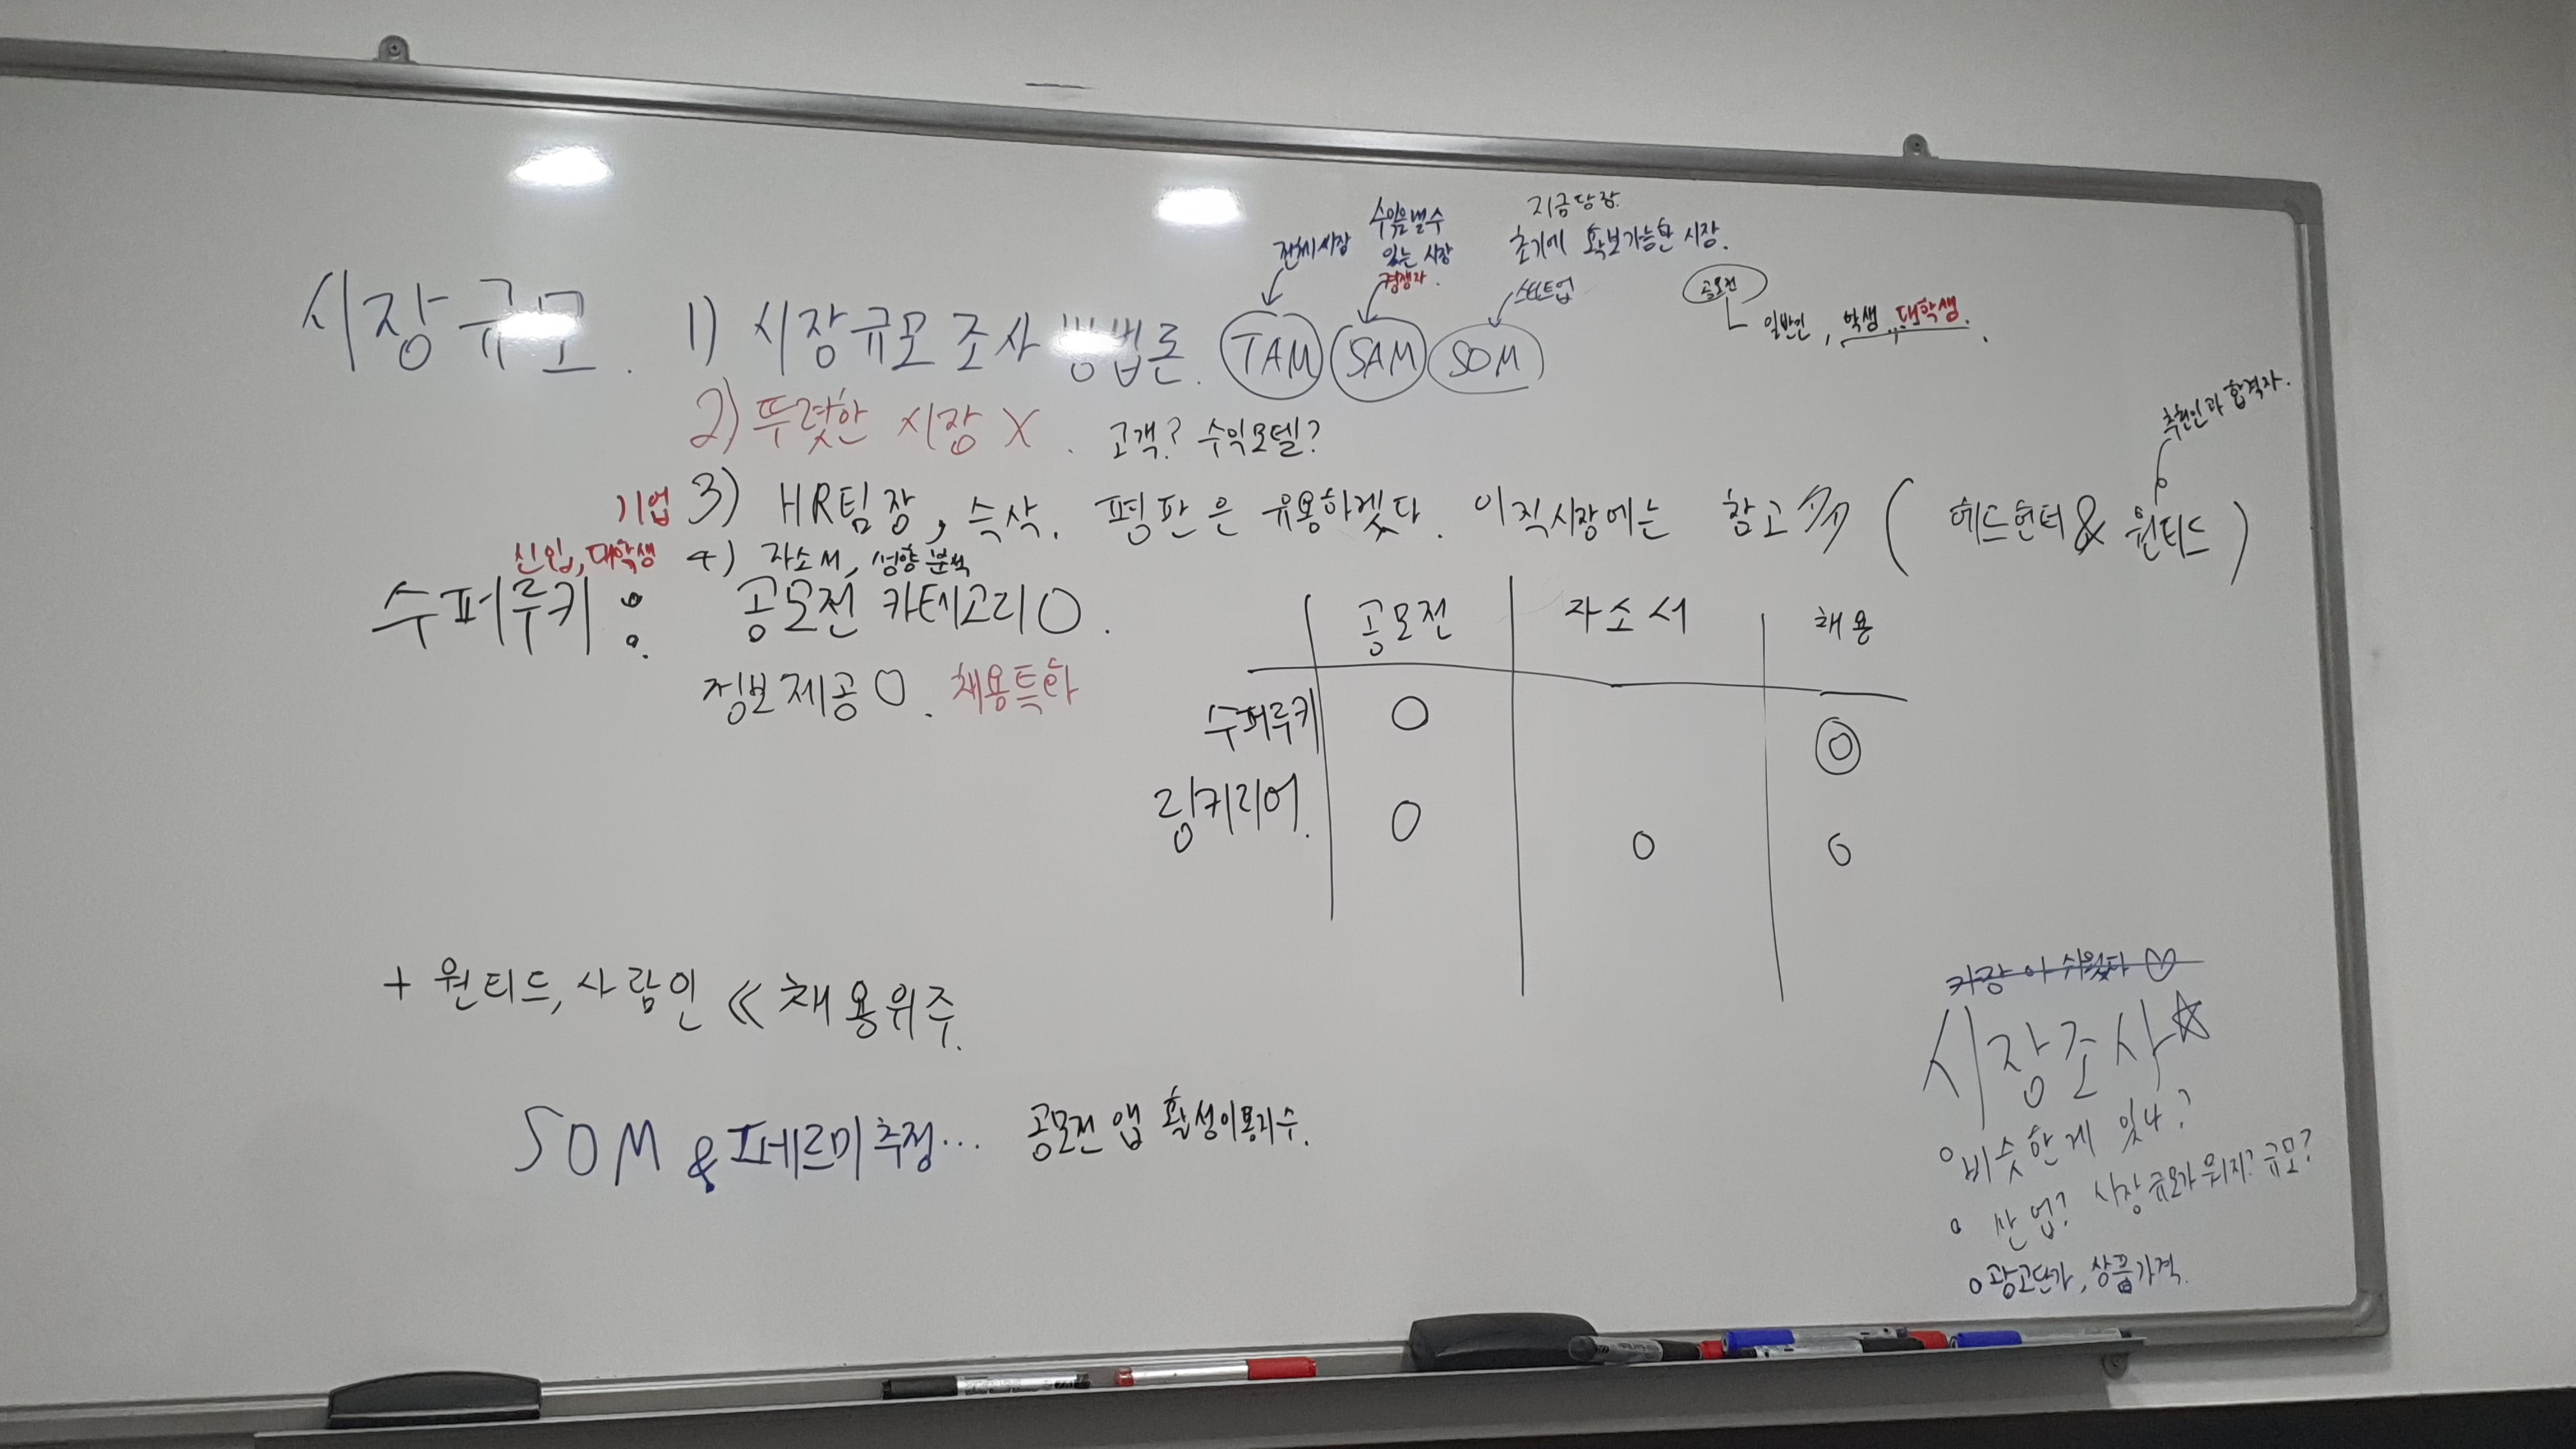 전체시장
수익을낼수
있는 시장
경쟁자.
지금당장
초기에 확보가능한 시장.
스타트업
공모전
일반인, 학생, 대학생.
시장규모. 1) 시장규모 조사 방법론. TAM SAM SOM
2) 뚜렷한 시장 X. 고객? 수익모델?
추천인과 합격자.
기업 3) HR팀장, 슥삭. 평판은 유용하겠다. 이직시장에는 참고 (헤드헌터 & 원티드)
신입, 대학생 4) 자소서, 성향 분석
수퍼루키 : 공모전 카테고리 O.
정보제공 O. 채용특화
공모전 자소서 채용
수퍼루키 O ◎
링커리어. O O O
+ 원티드, 사람인 << 채용위주.
SOM & 페르미추정... 공모전 앱 활성이용자수.
쉬웠다 ♡
시장조사☆
o 비슷한게 있나?
o 산업? 시장규모가 뭐지? 규모?
o 광고단가, 상품가격.